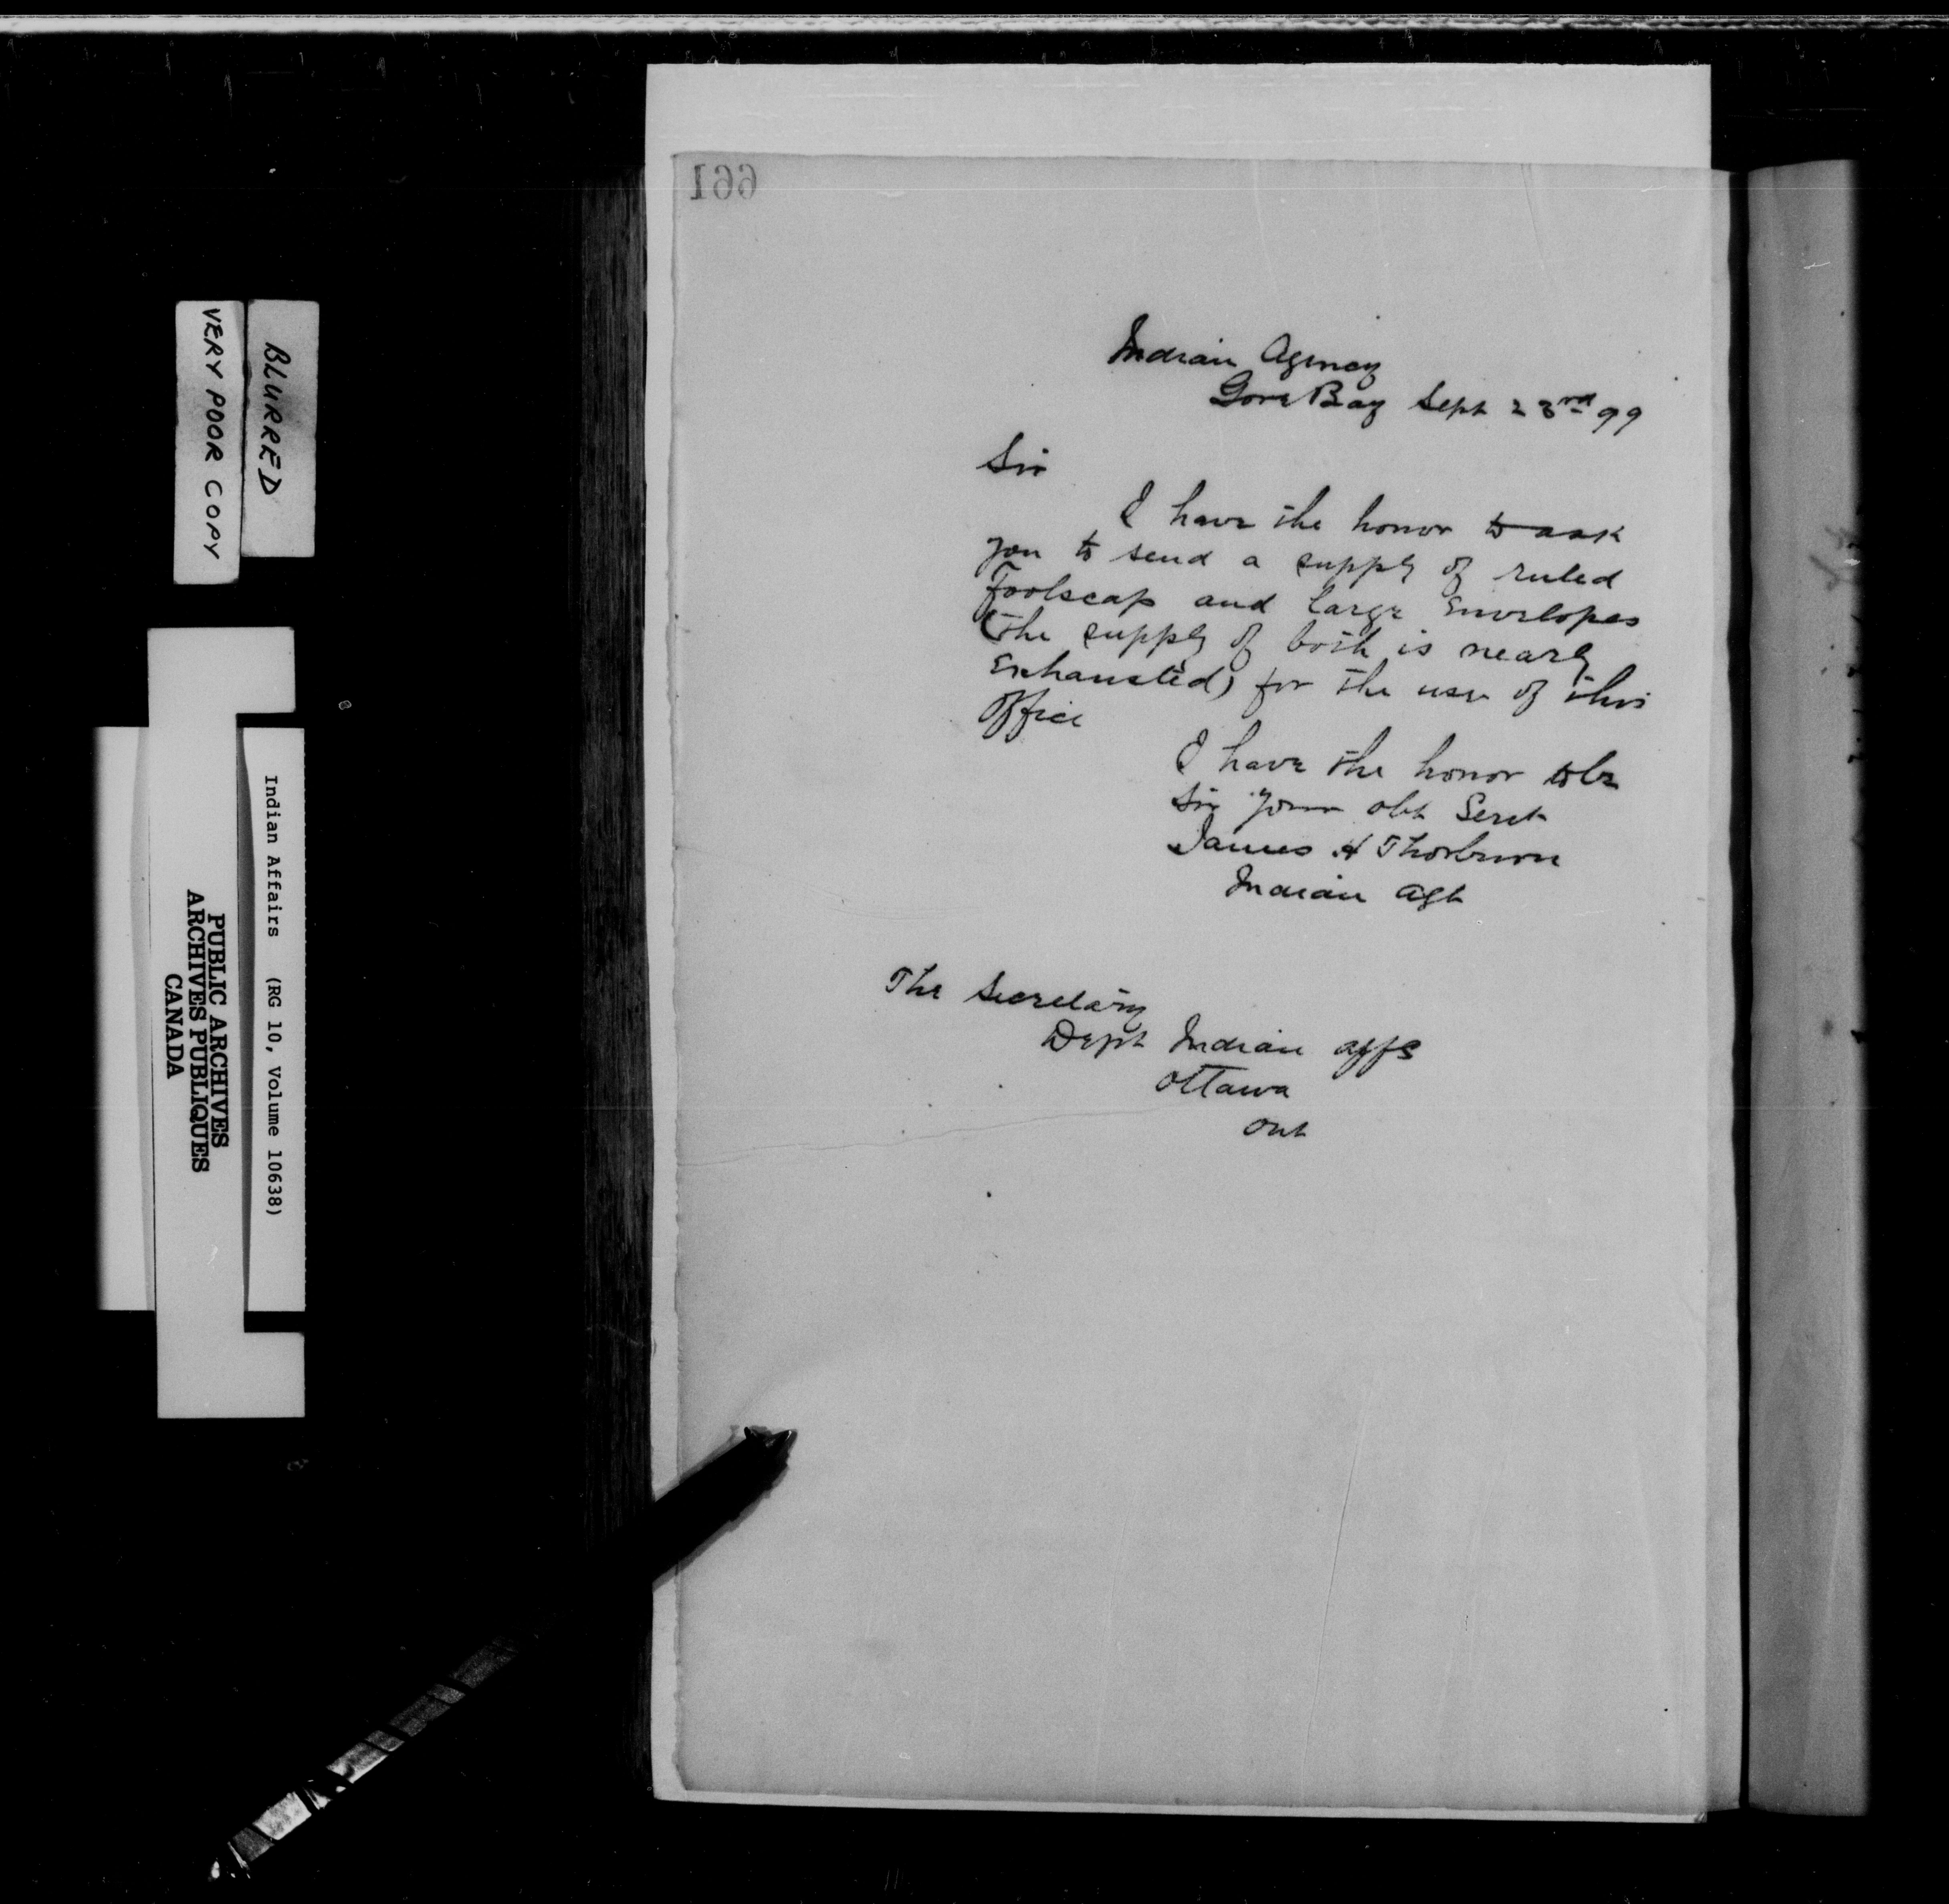 661
Indian Agency
Gore Bay Sept 23rd 99
Sir
I have the honor to ask
you to send a supply of ruled
Foolscap and large Envelopes
(the supply of both is nearly
Exhausted) for the use of this
Office
I have the honor to be
Sir Your obt Servt
James H Thorburn
Indian Agt
The Secretary
Dept Indian Affs
Ottawa
Ont
BLURRED
VERY POOR COPY
Indian Affairs (RG 10, Volume 10638)
PUBLIC ARCHIVES
ARCHIVES PUBLIQUES
CANADA